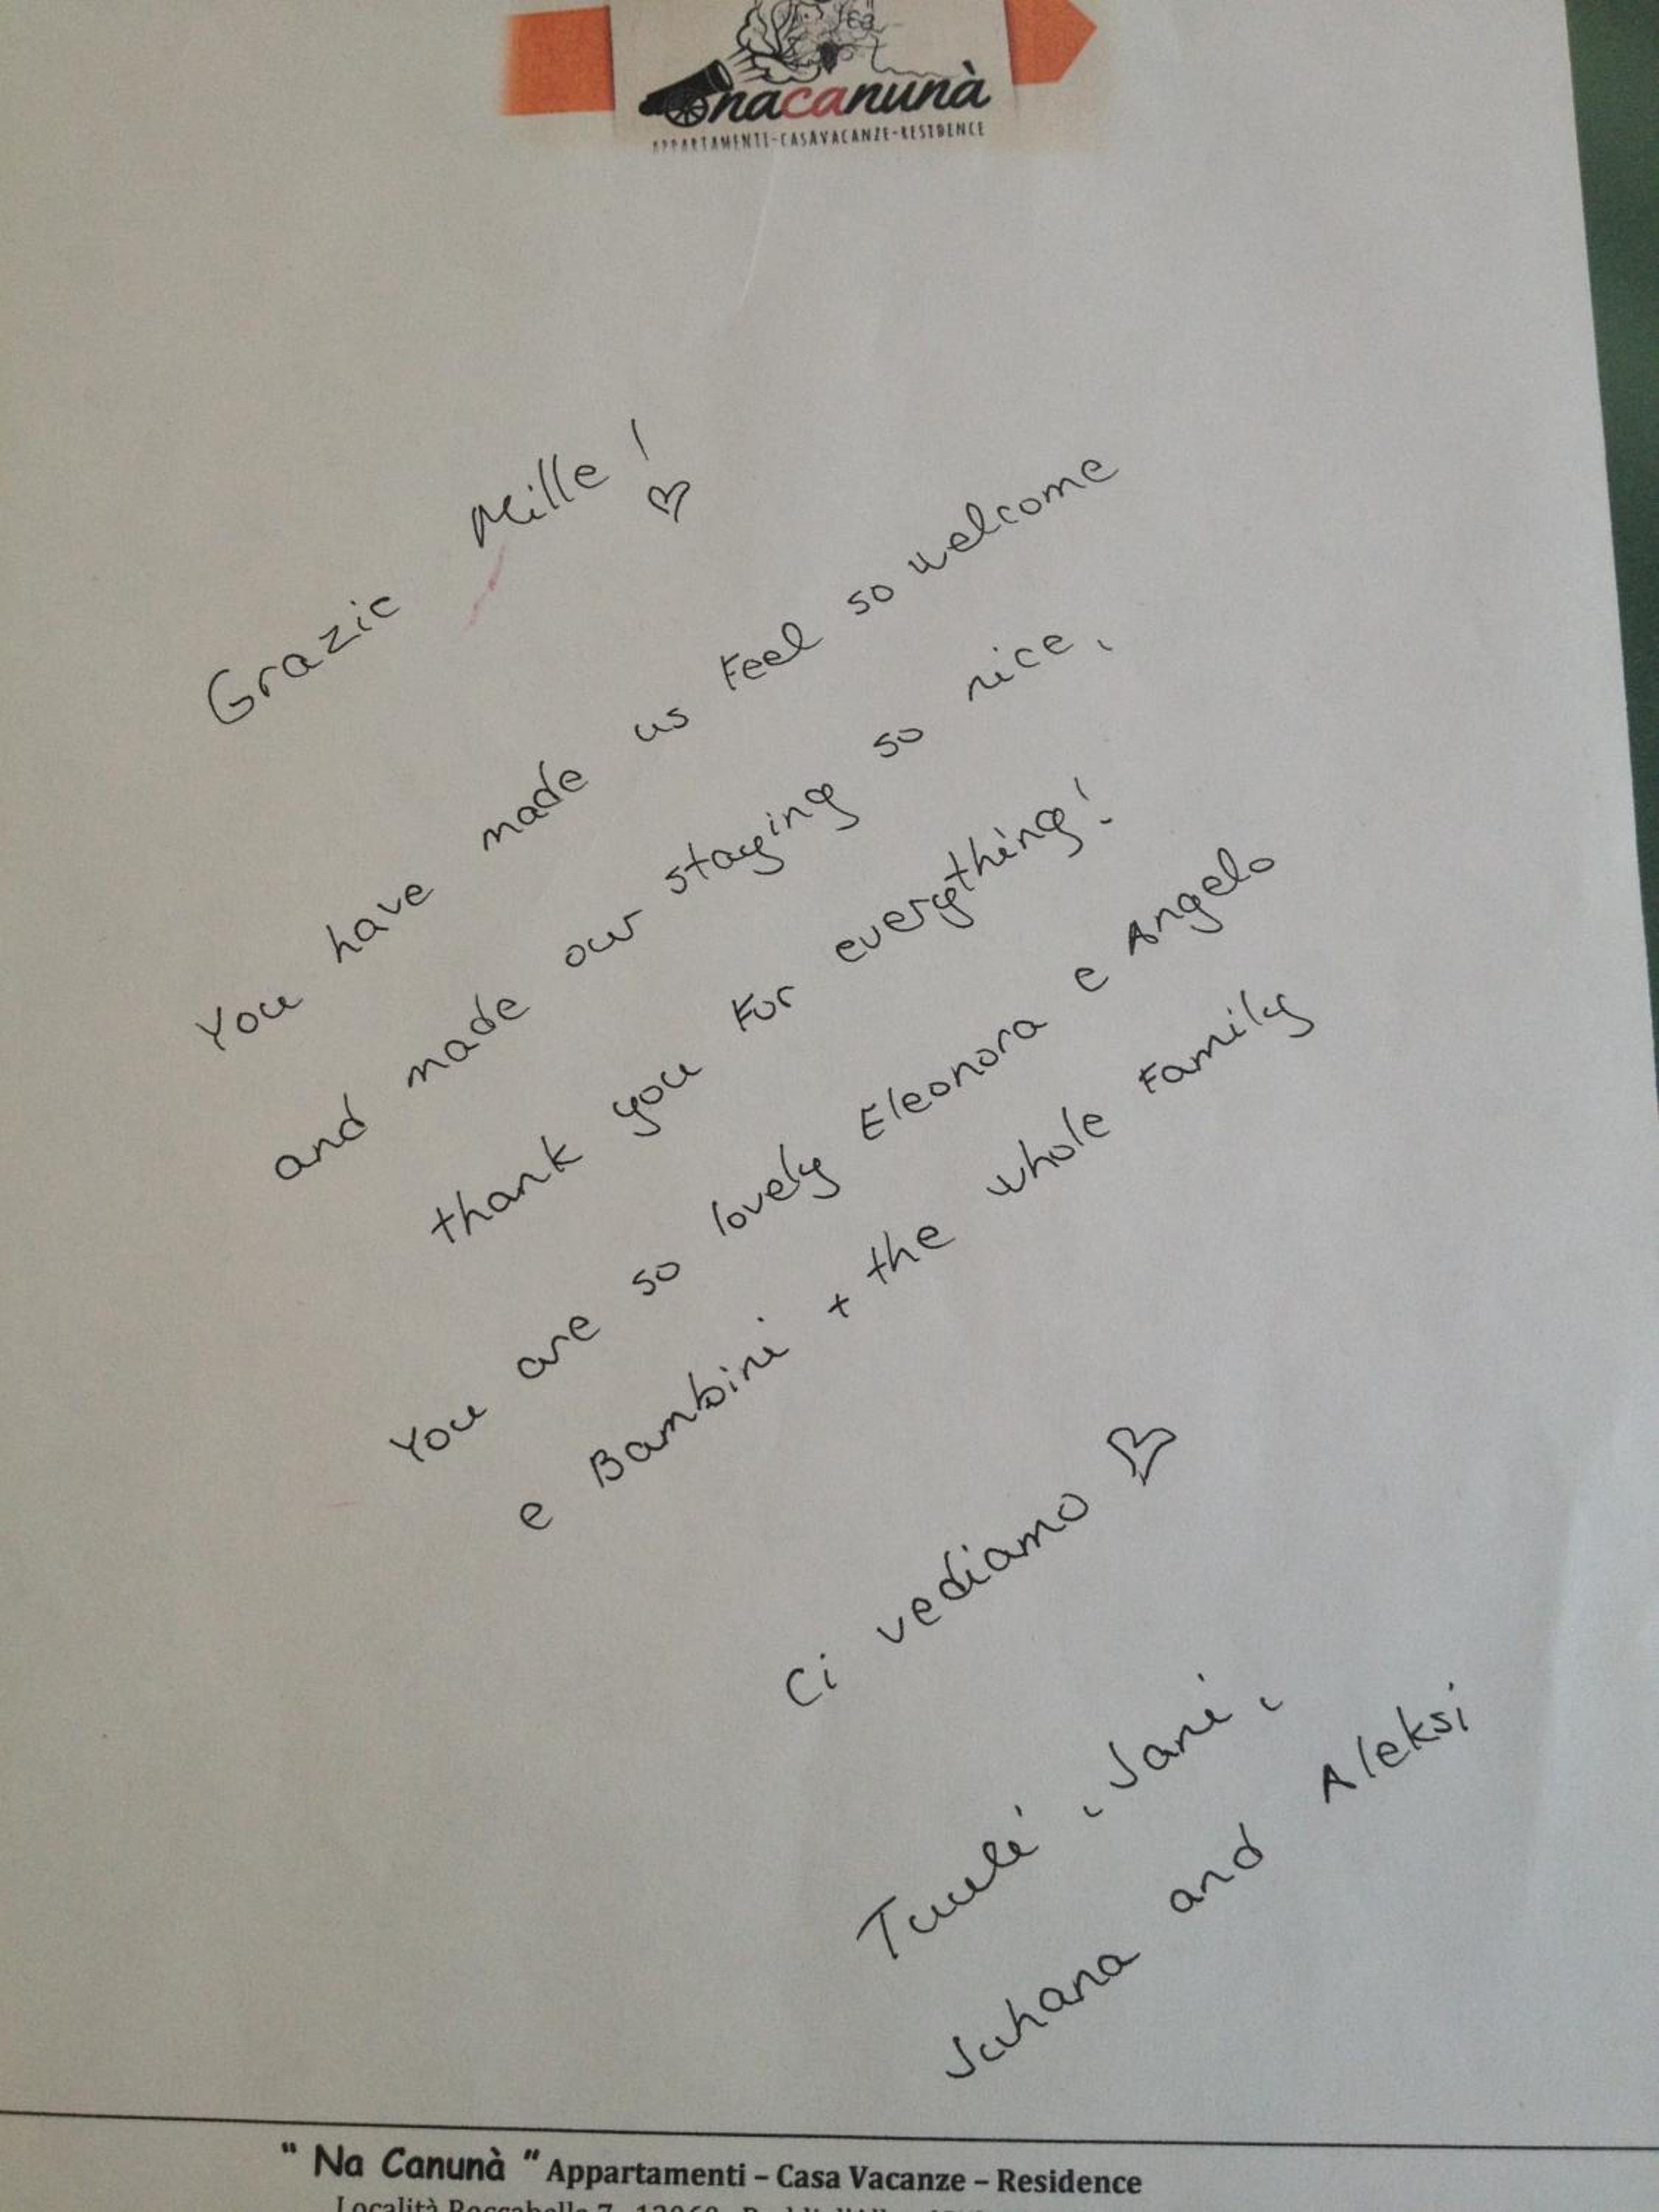 nacanunà
APPARTAMENTI-CASAVACANZE-RESIDENCE
Grazie Mille! ♡
You have made us feel so welcome
and made our staying so nice,
thank you for everything!
You are so lovely Eleonora e Angelo
e Bambini + the whole family
Ci vediamo ♡
Tuuli, Jani,
Juhana and Aleksi
" Na Canunà " Appartamenti – Casa Vacanze – Residence
Località